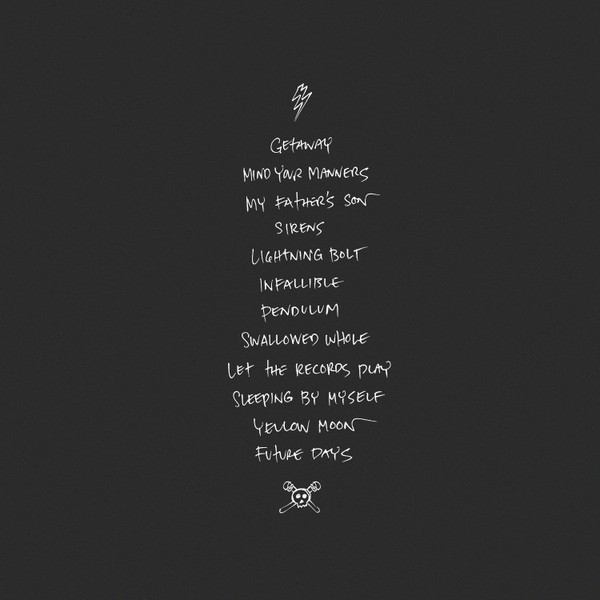 GETAWAY
MIND YOUR MANNERS
MY FATHER'S SON
SIRENS
LIGHTNING BOLT
INFALLIBLE
PENDULUM
SWALLOWED WHOLE
LET THE RECORDS PLAY
SLEEPING BY MYSELF
YELLOW MOON
FUTURE DAYS